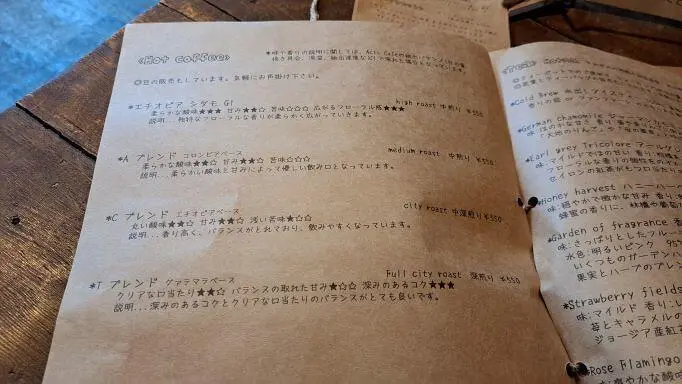 <Hot coffee>
*味や香りの説明に関しては、
◎豆の販売もしています。気軽にお声掛け下さい。
*エチオピア シダモ G1
high roast 中煎り ¥550
柔らかな酸味★★★ 甘み★★☆ 苦味☆☆☆ 広がるフローラル感★★★
説明...独特なフローラルな香りが柔らかく広がっていきます。
*A ブレンド コロンビアベース
medium roast 中煎り ¥550
柔らかな酸味★★☆ 甘み★★☆ 苦味☆☆☆
説明...柔らかい酸味と甘みによって優しい飲み口となっています。
*C ブレンド エチオピアベース
city roast 中深煎り ¥550
丸い酸味★★☆ 甘み★★☆ 浅い苦味★☆☆
説明...香り高く、バランスがとれており、飲みやすくなっています。
*T ブレンド グァテマラベース
Full city roast 深煎り ¥550
クリアな口当たり★★☆ バランスの取れた甘み★☆☆ 深みのあるコク★★★
説明...深みのあるコクとクリアな口当たりのバランスがとても良いです。
*Cold Brew 水出しアイステ
*German chamomile ジャーマン
*Earl Grey Tricolore アールグレ
味:マイルド
セイロンの紅茶がもつ
*Honey harvest ハニーハー
味:穏やかで微かな甘み 香り:
蜂蜜の香りに、林檎や
*Garden of fragrance 香
味:さっぱりとしたフルー
水色:明るいピンク 95%
いくつものガーデンハー
果実とハーブのアレン
*Strawberry fields
味:マイルド 香り:
苺とキャラメルの
ジョージア産紅茶
*Rose Flamingo
やかな酸味